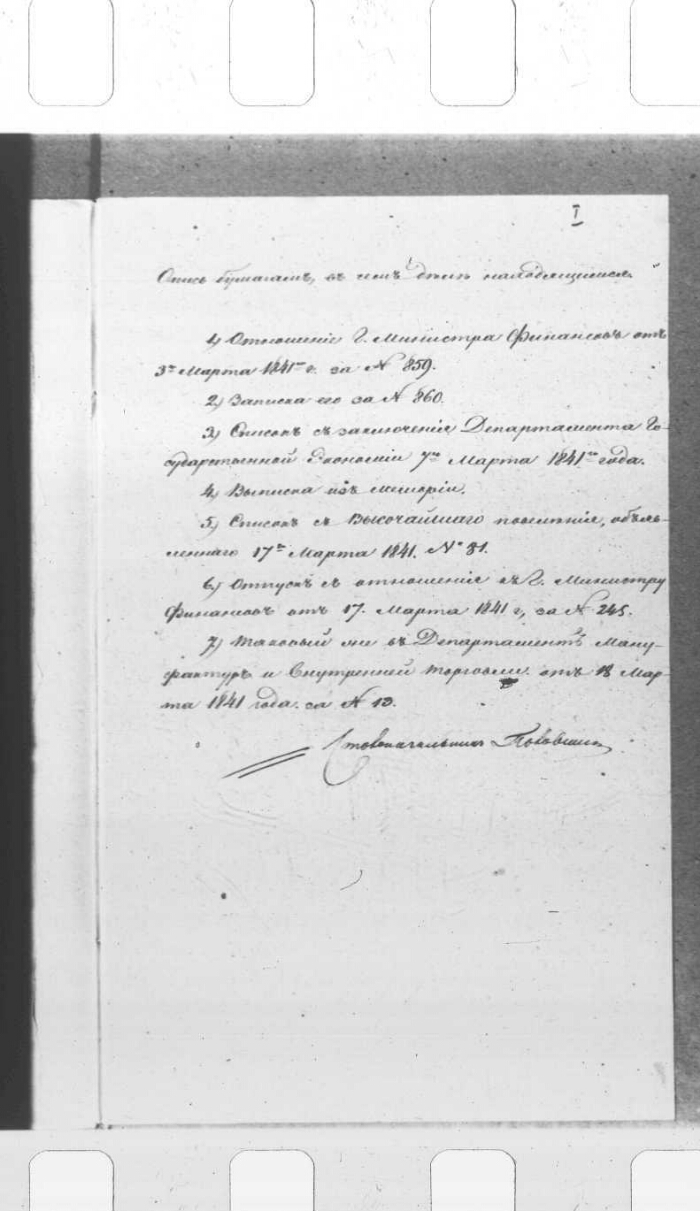 I
Опись бумагамъ, въ семъ дѣлѣ находящимся.
1) Отношеніе Г. Министра Финансовъ отъ
3го Марта 1841го г. за № 859.
2) Записка его за № 860.
3) Списокъ съ заключенія Департамента Го-
сударственной Экономіи 7го Марта 1841го года.
4) Выписка изъ меморіи.
5) Списокъ съ Высочайшаго повелѣнія, объяв-
леннаго 17го Марта 1841. № 81.
6) Отпускъ съ отношенія къ Г. Министру
Финансовъ отъ 17. Марта 1841 г., за № 245.
7) Таковый же въ Департаментъ Ману-
фактуръ и Внутренней торговли. отъ 18 Мар-
та 1841 года. за № 13.
Столоначальникъ